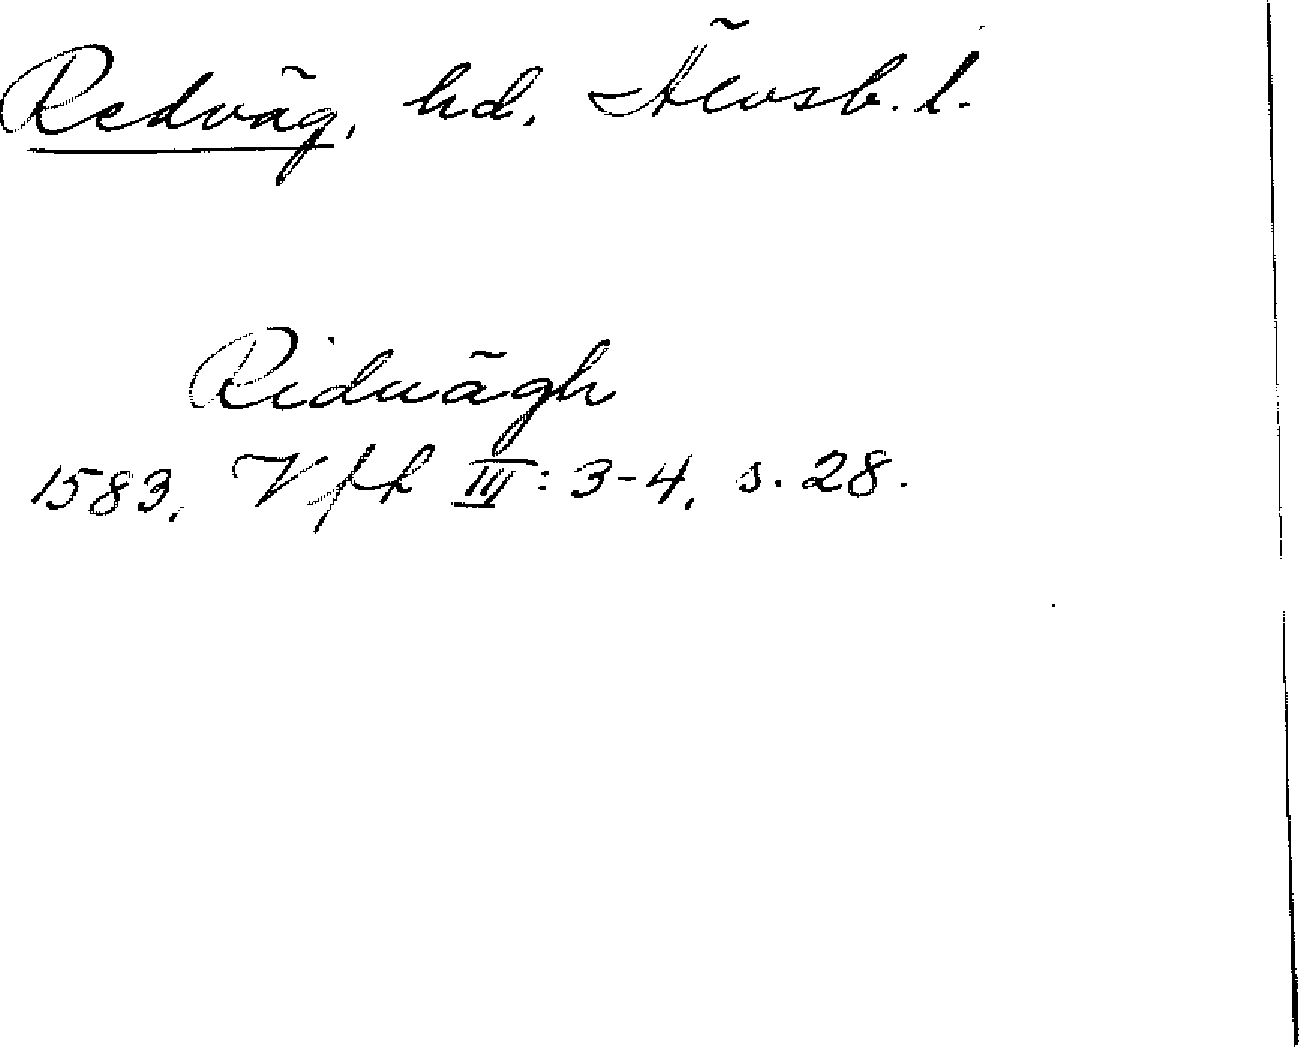 Redväg, hd, Älvsb. l.
Riduägh
1583, Vfh III: 3-4, s. 28.